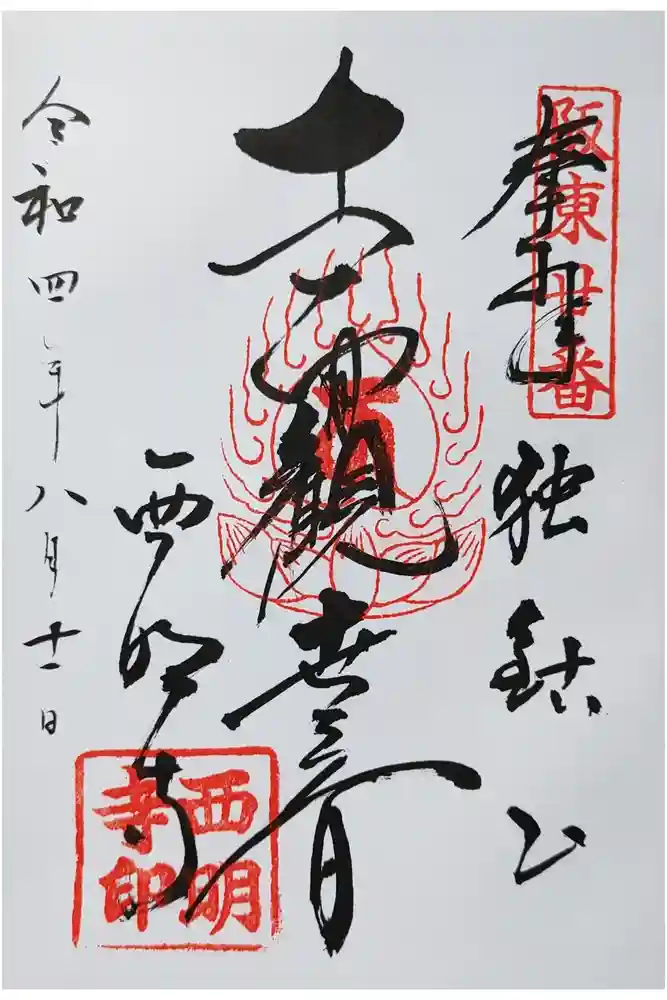 阪東廿番
奉拝
独鈷山
十一面観世音
西明寺
西明寺印
令和四年八月十一日